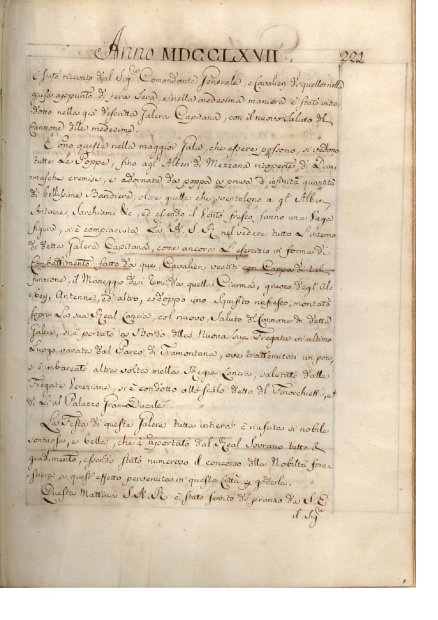 Anno MDCCLXVII 221
è stato ricevuto dal Sig.r Comandante Generale, e Cavalieri di quello nella
guisa appunto di jeri Sera, e nella medesima maniera è stato intro
dotto nella già descritta Galera Capitana, con il nuovo Saluto del
Cannone delle medesime.
E sono queste nella maggior gala, che essere possono, si vedono
tutte le Poppe, fino agli Alberi di Mezzana ricoperte di Dam
masche cremise, e adornata da poppa a prua d'infinità quantità
di bellissime Bandiere, oltre quelle che ventolono a gl' Alberi
Antenne, Sarchiami &c, ed essendo il Vento fresco, fanno una Vaga
figura, si è compiaciuta La A. S. R. nel vedere tutto l'interno
di detta Galera Capitana, come ancora L'esercizio in forma di
Combattimento fatto da que' Cavalieri vestiti con Cappa di tal
funzione, il Maneggio de' Remi da quella Ciurma, quioro degl' Al
beri, Antenne, ed altro, e doppo uno squisito rinfresco, montato
sopra La sua Real Lancia, col nuovo Saluto del Cannone di dette
Galere, si è portato a Bordo della Nuova sua Fregata in ultimo
Luogo, parata dal Parco di Tramontana, ove trattenutasi un poco,
si è imbarcato altra volta nella Regia Lancia, salutato dalle
Fregate Veneziane, si è condotto allo scalo detto di Finocchetti, e
di là al Palazzo Gran Ducale.
La Festa di queste Galere tutta intiera è riuscita si nobile
sontuosa, e bella, che à riportato dal Real Sovrano tutto il
gradimento, essendo stato numeroso il concorso della Nobiltà fore
stiera a quest' effetto pervenuta in questa Città p. goderla.
Questa Mattina S. A. R. è stato servito del pranzo da S. E.
il Sig.r